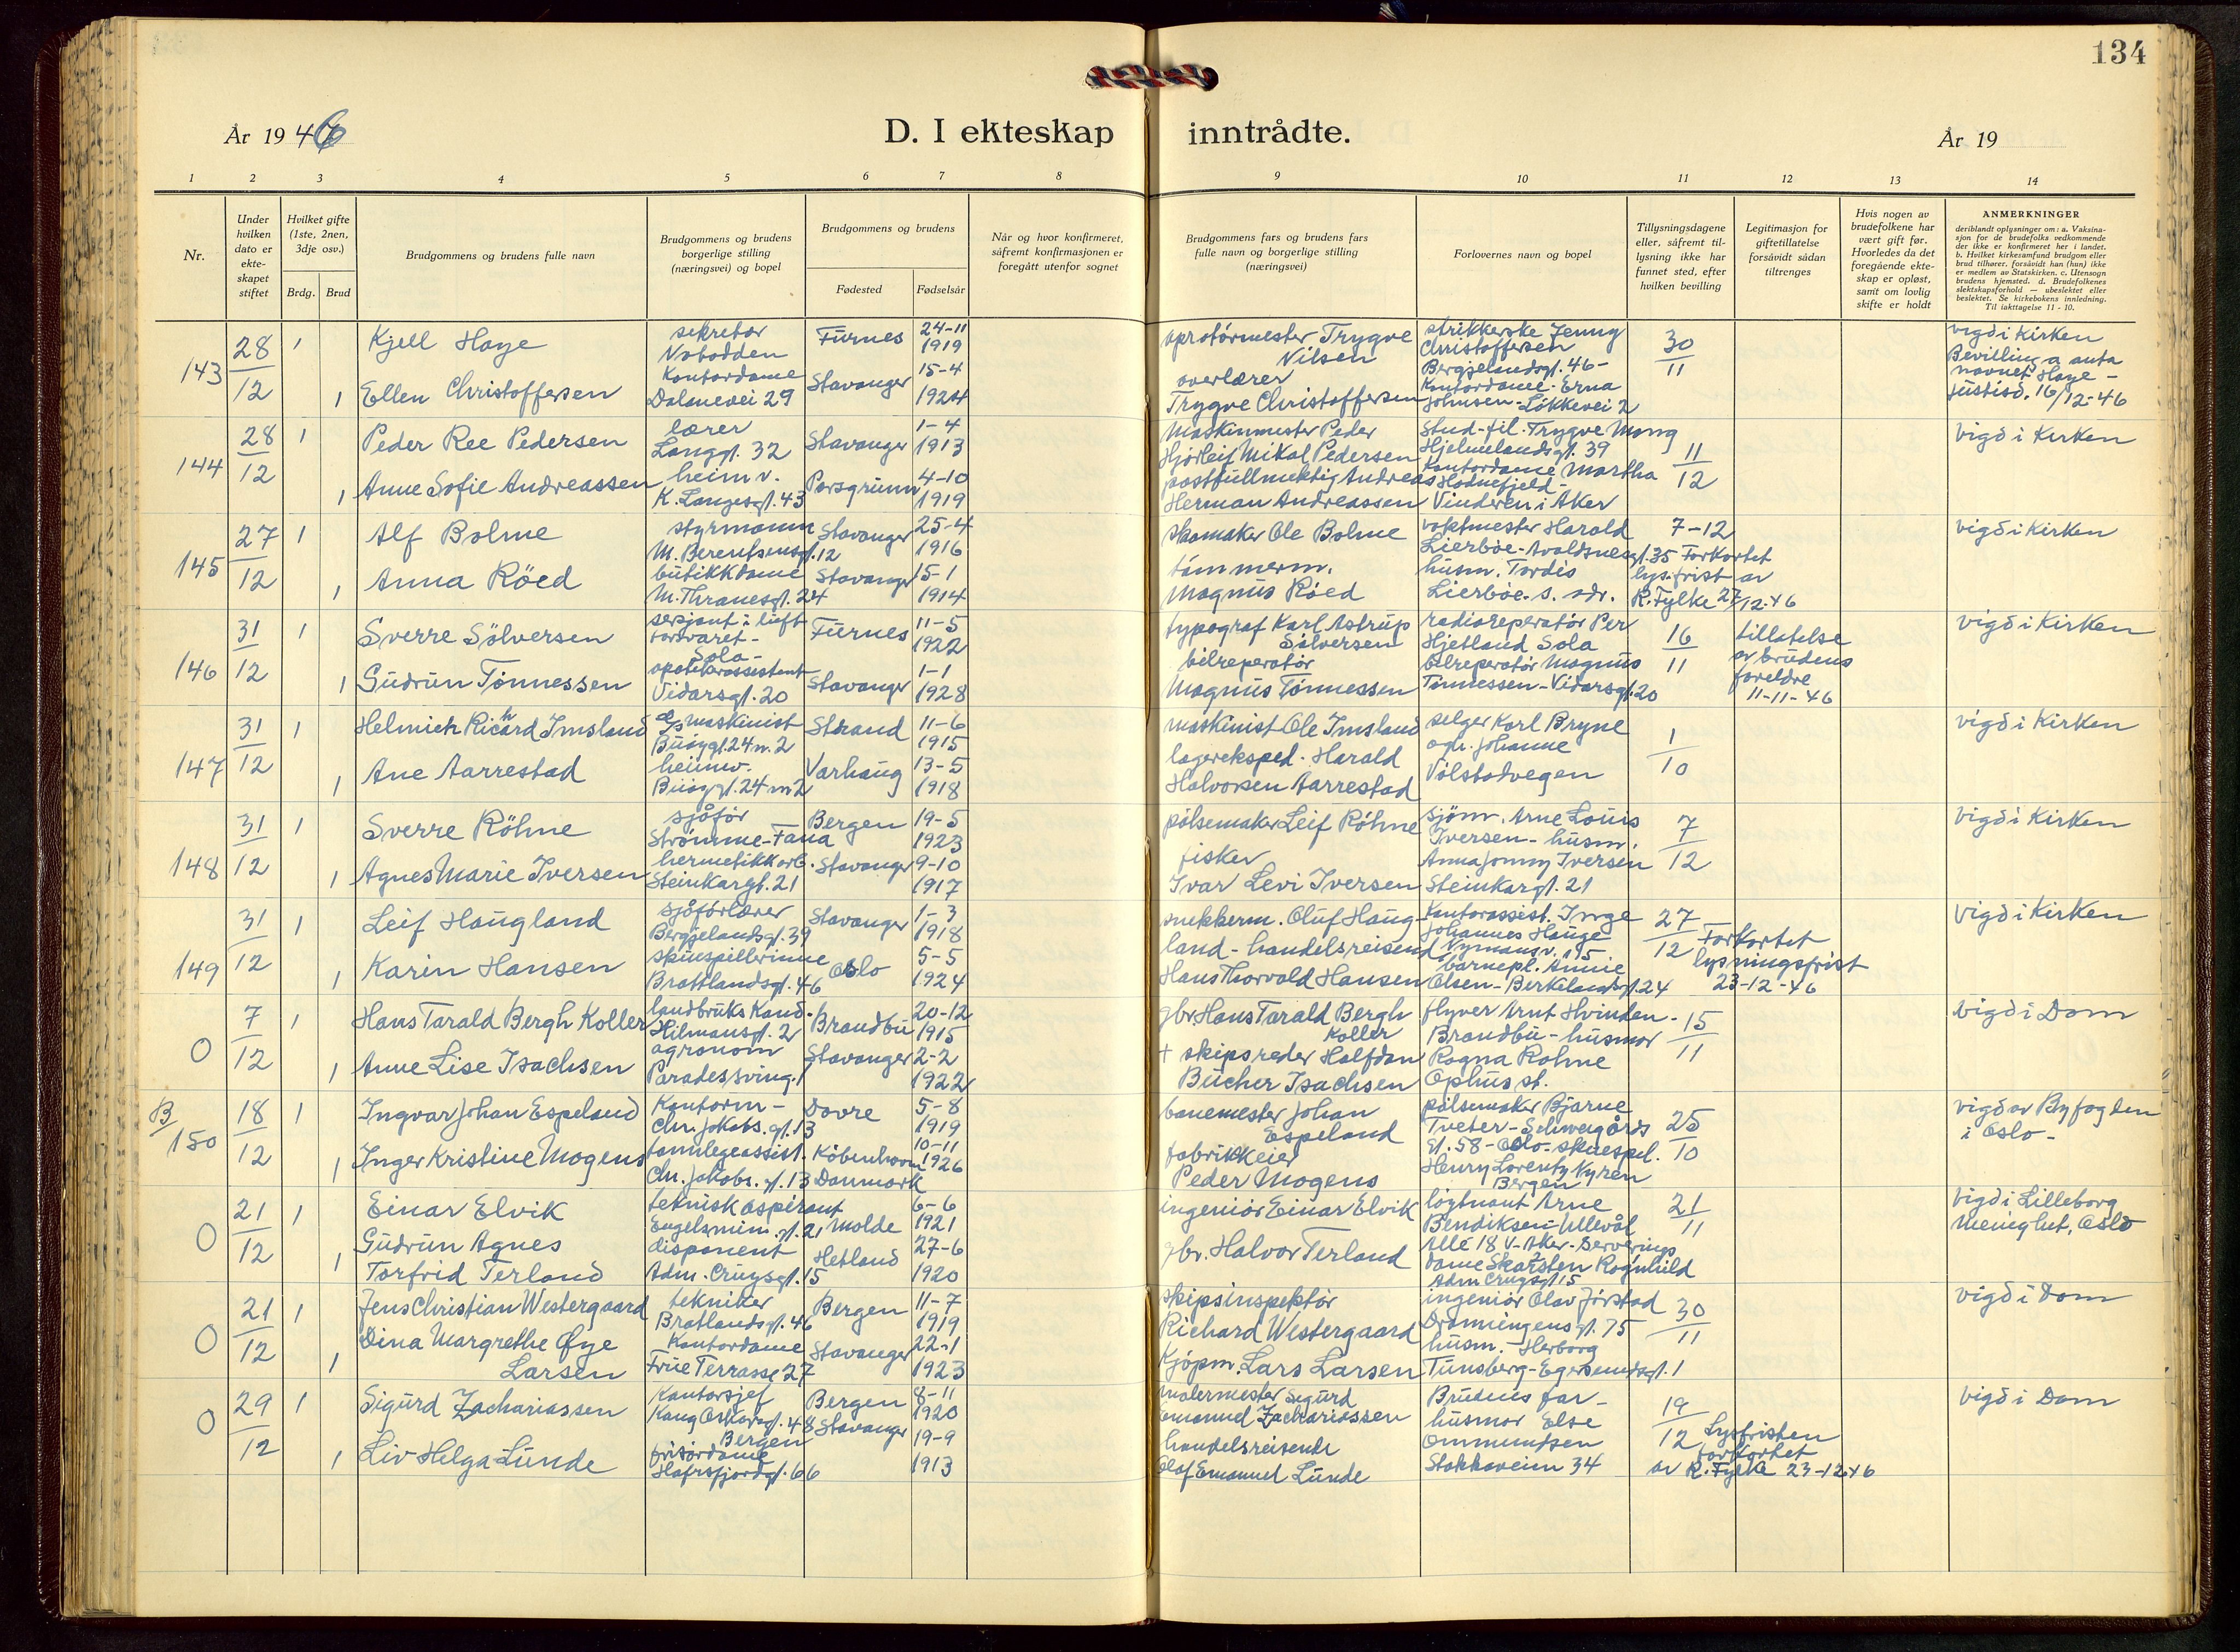 134
År 1946
D. I ekteskap inntrådte.
År 19
1 2 3 4 5 6 7 8 9 10 11 12 13 14
Nr.
Under
hvilken
dato er
ekte-
skapet
stiftet
Hvilket gifte
(1ste, 2nen,
3dje osv.)
Brdg. Brud
Brudgommens og brudens fulle navn
Brudgommens og brudens
borgerlige stilling
(næringsvei) og bopel
Brudgommens og brudens
Fødested Fødselsår
Når og hvor konfirmeret,
såfremt konfirmasjonen er
foregått utenfor sognet
Brudgommens fars og brudens fars
fulle navn og borgerlige stilling
(næringsvei)
Forlovernes navn og bopel
Tillysningsdagene
eller, såfremt til-
lysning ikke har
funnet sted, efter
hvilken bevilling
Legitimasjon for
giftetillatelse
forsåvidt sådan
tiltrenges
Hvis nogen av
brudefolkene har
vært gift før.
Hvorledes da det
foregående ekte-
skap er opløst,
samt om lovlig
skifte er holdt
ANMERKNINGER
deriblandt oplysninger om: a. Vaksina-
sjon for de brudefolks vedkommende
der ikke er konfirmeret her i landet.
b. Hvilket kirkesamfund brudgom eller
brud tilhører, forsåvidt han (hun) ikke
er medlem av Statskirken. c. Utensogn
brudens hjemsted. d. Brudefolkenes
slektskapsforhold — ubeslektet eller
beslektet. Se kirkebokens innledning.
Til iakttagelse 11 - 10.
143
28/12
1
Kjell Haye
sekretær
Furnes
24-11
1919
1
Ellen Christoffersen
Kontordame
Dalanevei 29
Stavanger
15-4
1924
Trygve
Nilsen
overlærer
Trygve Christoffersen
strikkerske Jenny
Christoffersen
Bergjelandsgt. 46-
Kontordame Erna
Johnsen - Løkkevei 2
30/11
vigd i Kirken
Bevilling a anta
navnet Haye -
Justisd. 16/12-46
144
28/12
1
Peder Ree Pedersen
lærer
Langgt. 32
Stavanger
1-4
1913
1
Anne Sofie Andreassen
heimv.
K. Langesgt. 43
Porsgrunn
4-10
1919
Maskinmester Peder
Hjørleif Mikal Pedersen
postfullmektig Andreas
Herman Andreassen
Stud-fil. Trygve Mong
Hjelmelandsgt. 39
Kontordame Martha
Hodnefjeld -
Vinderen i Aker
11/12
vigd i Kirken
145
27/12
1
Alf Bolme
styrmann
M. Berentsensgt. 12
Stavanger
25-4
1916
1
Anna Röed
butikkdame
M. Thranesgt. 24
Stavanger
15-1
1914
skomaker Ole Bolme
tømmerm.
Magnus Röed
vaktmester Harald
Lierbøe - Avaldsnesgt. 35
husm. Tordis
Lierbøe. s. adr.
7-12
Forkortet
lys. frist av
R. Fylke 27/12-46
vigd i Kirken
146
31/12
1
Sverre Sölversen
sersjant i luft
forsvaret -
Sola -
Furnes
11-5
1922
1
Gudrun Tönnessen
apotekerassistent
Vidarsgt. 20
Stavanger
1-1
1928
typograf Karl Astrup
Sölversen
bilreperatør
Magnus Tönnessen
radioreperatør Per
Hjetland Sola
bilreperatør Magnus
Tönnessen - Vidarsgt. 20
16/11
tillatelse
av brudens
foreldre
11-11-46
vigd i Kirken
147
31/12
1
Helmich Richard Imsland
maskinist
Buøygt. 24 n. 2
Strand
11-6
1915
1
Ane Aarrestad
heimv.
Buøygt. 24 n 2
Varhaug
13-5
1918
maskinist Ole Imsland
lagereksped. Harald
Halvorsen Aarrestad
selger Karl Bryne
og h. Johanne
Vølstadvegen
1/10
vigd i Kirken
148
31/12
1
Sverre Röhne
sjåför
Strömme-Fana
Bergen
19-5
1923
1
Agnes Marie Iversen
hermetikkarb.
Steinkargt. 21
Stavanger
9-10
1917
pølsemaker Leif Röhne
fisker
Ivar Levi Iversen
sjöm. Arne Louis
Iversen - husm.
Anna Jonny Iversen
Steinkargt. 21
7/12
vigd i Kirken
149
31/12
1
Leif Haugland
sjåförlærer
Bergjelandsgt. 39
Stavanger
1-3
1918
1
Karin Hansen
skuespillerinne
Brattlandsgt. 46
Oslo
5-5
1924
snekkerm. Oluf Haug-
land - handelsreisend
Hans Thorvald Hansen
Kontorassist. Inge
Johannes Hauge
Nymansv. 195
barnepl. Annie
Olsen - Birkelandsgt. 24
27/12
Forkortet
lysningsfrist
23-12-46
vigd i Kirken
0
7/12
1
Hans Tarald Bergh Koller
landbruks Kand.
Hilmansgt. 2
Brandbu
20-12
1915
1
Anne Lise Isachsen
agronom
Paradessving. 1
Stavanger
2-2
1922
gbr Hans Tarald Bergh
Koller
+ skipsreder Halfdan
Bücher Isachsen
flyver Arnt Hvinden -
Brandbu - husmor
Ragna Rohne
Ophus st.
15/11
vigd i Dom
B/150
18/12
1
Ingvar Johan Espeland
Kontorm -
Chr. Jakobs. gt. 13
Dovre
5-8
1919
1
Inger Kristine Mogens
tannlegeassist.
Chr. Jakobs. gt. 13
Köbenhavn
Danmark
10-11
1926
banemester Johan
Espeland
fabrikkeier
Peder Mogens
pølsemaker Bjarne
Tveter - Schweigårds
gt. 58 - Oslo - skuespel.
Henry Lorentz Nyren
Bergen
25/10
vigd av Byfogden
i Oslo -
0
21/12
1
Einar Elvik
teknisk aspirant
Engelsmin. gt. 21
Molde
6-6
1921
1
Gudrun Agnes
Torfrid Terland
disponent
Adm. Cruysgt. 15
Hetland
27-6
1920
ingeniør Einar Elvik
gbr. Halvor Terland
löytnant Arne
Bendiksen - Ullevål
Alle 18 V-Aker - Serverings
dame Skarsten Ragnhild
Adm Crugsgt 15
21/11
vigd i Lilleborg
menighet, Oslo
0
21/12
1
Jens Christian Westergaard
tekniker
Bratlandsgt. 46
Bergen
11-7
1919
1
Dina Margrethe Øye
Larsen
Kontordame
Frue Terrasse 27
Stavanger
22-1
1923
skipsinspektør
Richard Westergaard
Kjöpm. Lars Larsen
ingeniør Olav Jörstad
Dronningensgt. 75
husm. - Herborg
Tunsberg - Egersundsgt. 1
30/11
vigd i Dom
0
29/12
1
Sigurd Zachariassen
Kontorsjef
Kong Oskarsgt. 48
Bergen
Bergen
8-11
1920
1
Liv Helga Lunde
frisørdame
Hafrsfjordgt. 66
Stavanger
19-9
1913
malermester Sigurd
Emanuel Zachariassen
handelsreisende
Olaf Emanuel Lunde
Brudens far -
husmor Else
Ommundsen
Stokkaveien 34
19/12
Lysfristen
forkortet
av R. Fylke 23-12-46
vigd i Dom